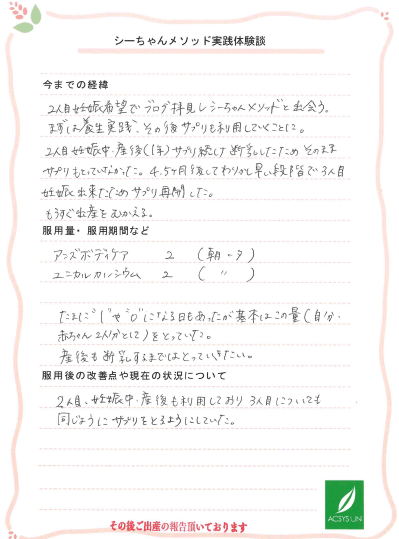 シーちゃんメソッド実践体験談
今までの経緯
2人目妊娠希望でブログ拝見しシーちゃんメソッドと出会う。
まずは養生実践、その後サプリも利用していくことに。
2人目妊娠中・産後(1年)サプリ続け断乳したためそのまま
サプリもとっていなかった。4.5ヶ月後してわりかし早い段階で3人目
妊娠出来たためサプリ再開した。
もうすぐ出産をむかえる。
服用量・服用期間など
アンズボディケア 2 (朝-夕)
ユニカルカルシウム 2 ( 〃 )
たまに"1"や"0"になる日もあったが基本はこの量(自分・
赤ちゃん2人分として)をとっていた。
産後も断乳するまではとっていきたい。
服用後の改善点や現在の状況について
2人目、妊娠中・産後も利用しており3人目についても
同じようにサプリをとるようにしていた。
ACSYSUN
その後ご出産の報告頂いております